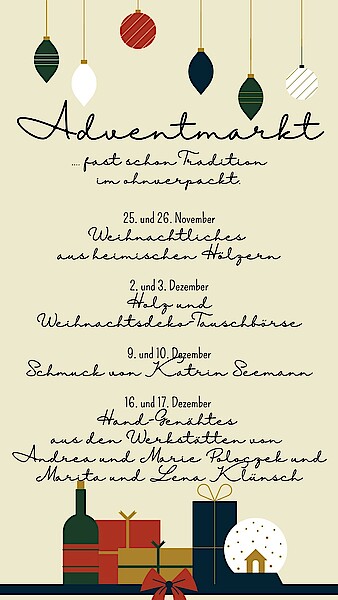 Adventmarkt
.... fast schon Tradition
im ohnverpackt.
25. und 26. November
Weihnachtliches
aus heimischen Hölzern
2. und 3. Dezember
Holz und
Weihnachtsdeko-Tauschbörse
9. und 10. Dezember
Schmuck von Katrin Seemann
16. und 17. Dezember
Hand-Genähtes
aus den Werkstätten von
Andrea und Marie Poloczek und
Marita und Lena Klünsch